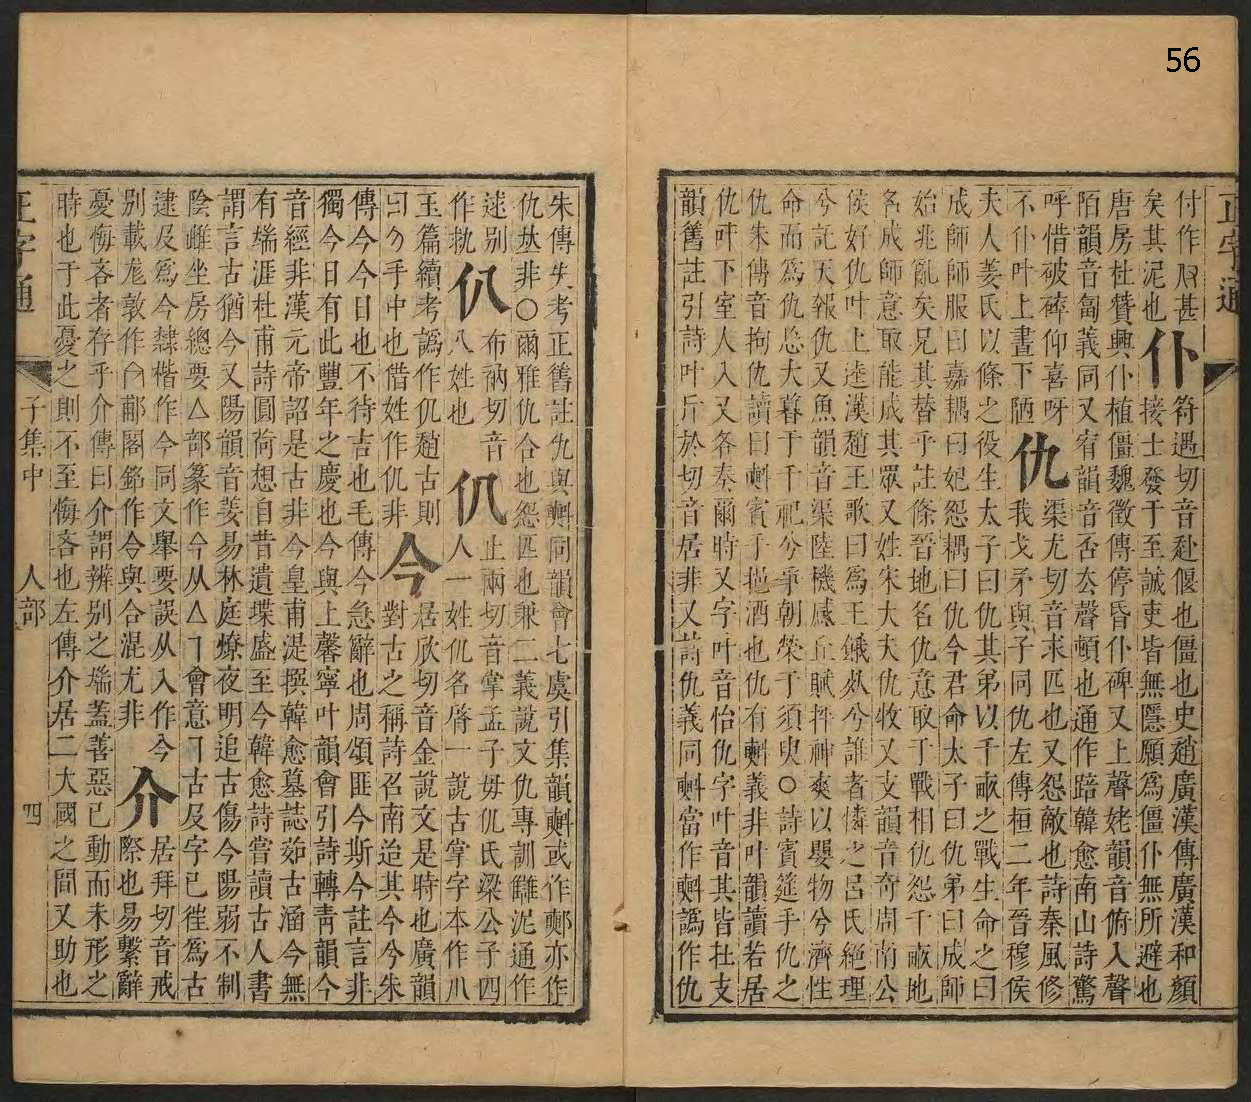 56
正字通
付作𠬝甚
矣其泥也
仆
符遇切音赴偃也僵也史趙廣漢傳廣漢和顏
接士發于至誠吏皆無隱願為僵仆無所避也
唐房杜贊興仆植僵魏徵傳停昏仆碑又上聲姥韻音俯入聲
陌韻音匐義同又宥韻音否去聲頓也通作踣韓愈南山詩驚
呼惜破碎仰喜呀
不仆叶上晝下陋
仇
渠尤切音求匹也又怨敵也詩秦風修
我戈矛與子同仇左傳桓二年晉穆侯
夫人姜氏以條之役生太子曰仇其弟以千畝之戰生命之曰
成師師服曰嘉耦曰妃怨耦曰仇今君命太子曰仇弟曰成師
始兆亂矣兄其替乎註條晉地名仇意取于戰相仇怨千畝地
名成師意取能成其眾又姓宋大夫仇牧又支韻音奇周南公
侯好仇叶上逵漢趙王歌曰為王餓死兮誰者憐之呂氏絕理
兮託天報仇又魚韻音渠陸機感丘賦抃神爽以嬰物兮濟性
命而為仇忽大暮于千祀兮爭朝榮于須臾○詩賓筵手仇之
仇朱傳音拘仇讀曰㪺賓手挹酒也仇有㪺義非叶韻讀若居
仇叶下室人入又各奏爾時又字叶音怡仇字叶音其皆在支
韻舊註引詩叶斤於切音居非又詩仇義同㪺當作㪺譌作仇
朱傳失考正舊註仇與㪺同韻會七虞引集韻㪺或作𣂁亦作
仇𠀤非○爾雅仇合也怨匹也兼二義說文仇專訓讎泥通作
逑別
作执
仈
布衲切音
八姓也
仉
止兩切音掌孟子毋仉氏梁公子四
人一姓仉名脀一說古掌字本作爪
玉篇續考譌作仉趙古則
曰勿手中也借姓作仉非
今
居欣切音金說文是時也廣韻
對古之稱詩召南迨其今兮朱
傳今今日也不待吉也毛傳今急辭也周頌匪今斯今註言非
獨今日有此豐年之慶也今與上馨寧叶韻會引詩轉青韻今
音經非漢元帝詔是古非今皇甫湜撰韓愈墓誌茹古涵今無
有端涯杜甫詩圓荷想自昔遺堞盛至今韓愈詩嘗讀古人書
謂言古猶今又陽韻音姜易林庭燎夜明追古傷今陽弱不制
陰雌坐房總要亼部篆作今从亼㇕會意㇕古及字已徃為古
逮及為今隸楷作今同文舉要誤从入作今
別載尨敦作𠆢郙閣銘作令與合混尤非
介
居拜切音戒
際也易繫辭
憂悔吝者存乎介傳曰介謂辨別之端蓋善惡已動而未形之
時也于此憂之則不至悔吝也左傳介居二大國之間又助也
正字通
子集中
人部
四